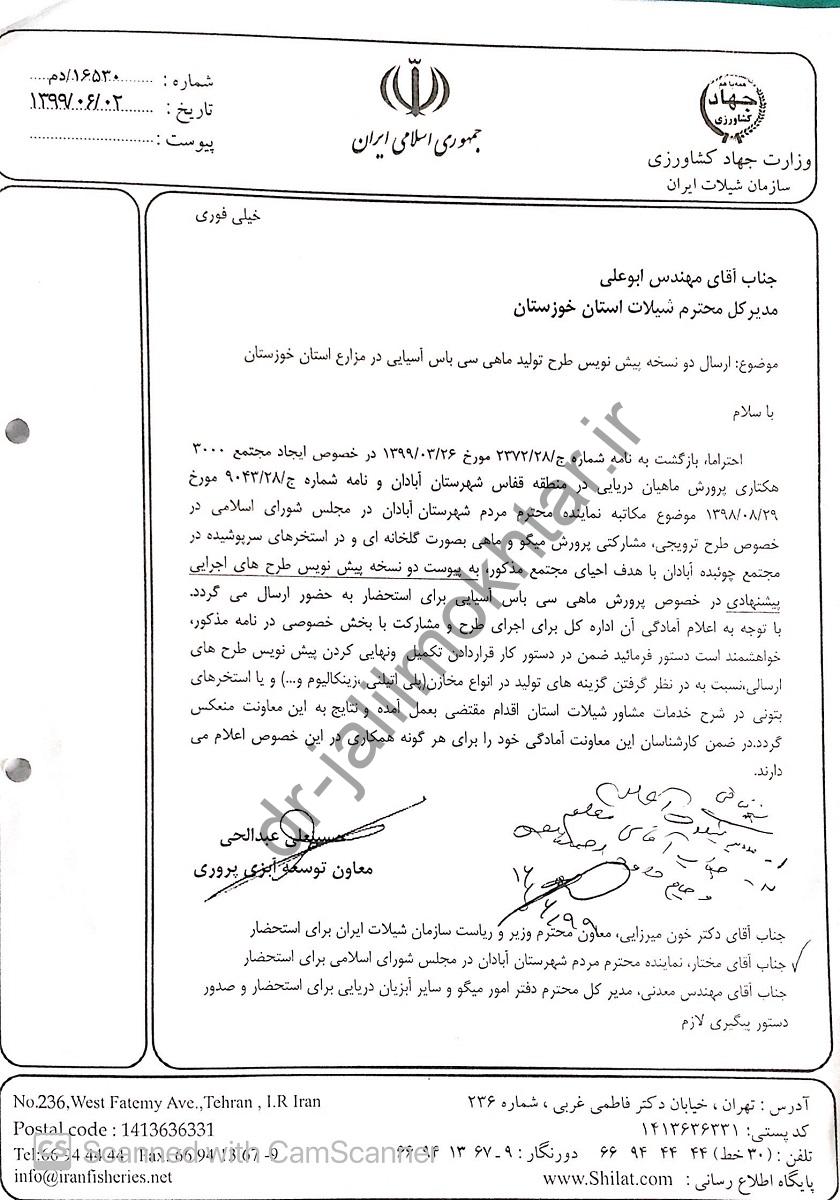 شماره : ۱۶۵۳۰/دم
تاریخ : ۱۳۹۹/۰۶/۰۲
پیوست :
جمهوری اسلامی ایران
همه با هم
جهاد
کشاورزی
وزارت جهاد کشاورزی
سازمان شیلات ایران
خیلی فوری
جناب آقای مهندس ابوعلی
مدیرکل محترم شیلات استان خوزستان
موضوع: ارسال دو نسخه پیش نویس طرح تولید ماهی سی باس آسیایی در مزارع استان خوزستان
با سلام
احتراما، بازگشت به نامه شماره ج/۲۳۷۲/۲۸ مورخ ۱۳۹۹/۰۳/۲۶ در خصوص ایجاد مجتمع ۳۰۰۰
هکتاری پرورش ماهیان دریایی در منطقه قفاس شهرستان آبادان و نامه شماره ج/۹۰۴۳/۲۸ مورخ
۱۳۹۸/۰۸/۲۹ موضوع مکاتبه نماینده محترم مردم شهرستان آبادان در مجلس شورای اسلامی در
خصوص طرح ترویجی، مشارکتی پرورش میگو و ماهی بصورت گلخانه ای و در استخرهای سرپوشیده در
مجتمع چوئبده آبادان با هدف احیای مجتمع مذکور، به پیوست دو نسخه پیش نویس طرح های اجرایی
پیشنهادی در خصوص پرورش ماهی سی باس آسیایی برای استحضار به حضور ارسال می گردد.
با توجه به اعلام آمادگی آن اداره کل برای اجرای طرح و مشارکت با بخش خصوصی در نامه مذکور،
خواهشمند است دستور فرمائید ضمن در دستور کار قراردادن تکمیل ونهایی کردن پیش نویس طرح های
ارسالی،نسبت به در نظر گرفتن گزینه های تولید در انواع مخازن(پلی اتیلنی ،زینکالیوم و...) و یا استخرهای
بتونی در شرح خدمات مشاور شیلات استان اقدام مقتضی بعمل آمده و نتایج به این معاونت منعکس
گردد.در ضمن کارشناسان این معاونت آمادگی خود را برای هر گونه همکاری در این خصوص اعلام می
دارند.
حسینعلی عبدالحی
معاون توسعه آبزی پروری
جناب آقای دکتر خون میرزایی، معاون محترم وزیر و ریاست سازمان شیلات ایران برای استحضار
جناب آقای مختار، نماینده محترم مردم شهرستان آبادان در مجلس شورای اسلامی برای استحضار
جناب آقای مهندس معدنی، مدیر کل محترم دفتر امور میگو و سایر آبزیان دریایی برای استحضار و صدور
دستور پیگیری لازم
dr-jalilmokhtar.ir
آدرس : تهران ، خیابان دکتر فاطمی غربی ، شماره ۲۳۶
کد پستی: ۱۴۱۳۶۳۶۳۳۱
تلفن : (۳۰ خط) ۴۴ ۴۴ ۹۴ ۶۶ دورنگار : ۹-۶۷ ۱۳ ۹۴ ۶۶
پایگاه اطلاع رسانی : www.Shilat.com
No.236,West Fatemy Ave.,Tehran , I.R Iran
Postal code : 1413636331
Tel:66 94 44 44 Fax: 66 94 13 67 -9
info@iranfisheries.net
CS Scanned with CamScanner